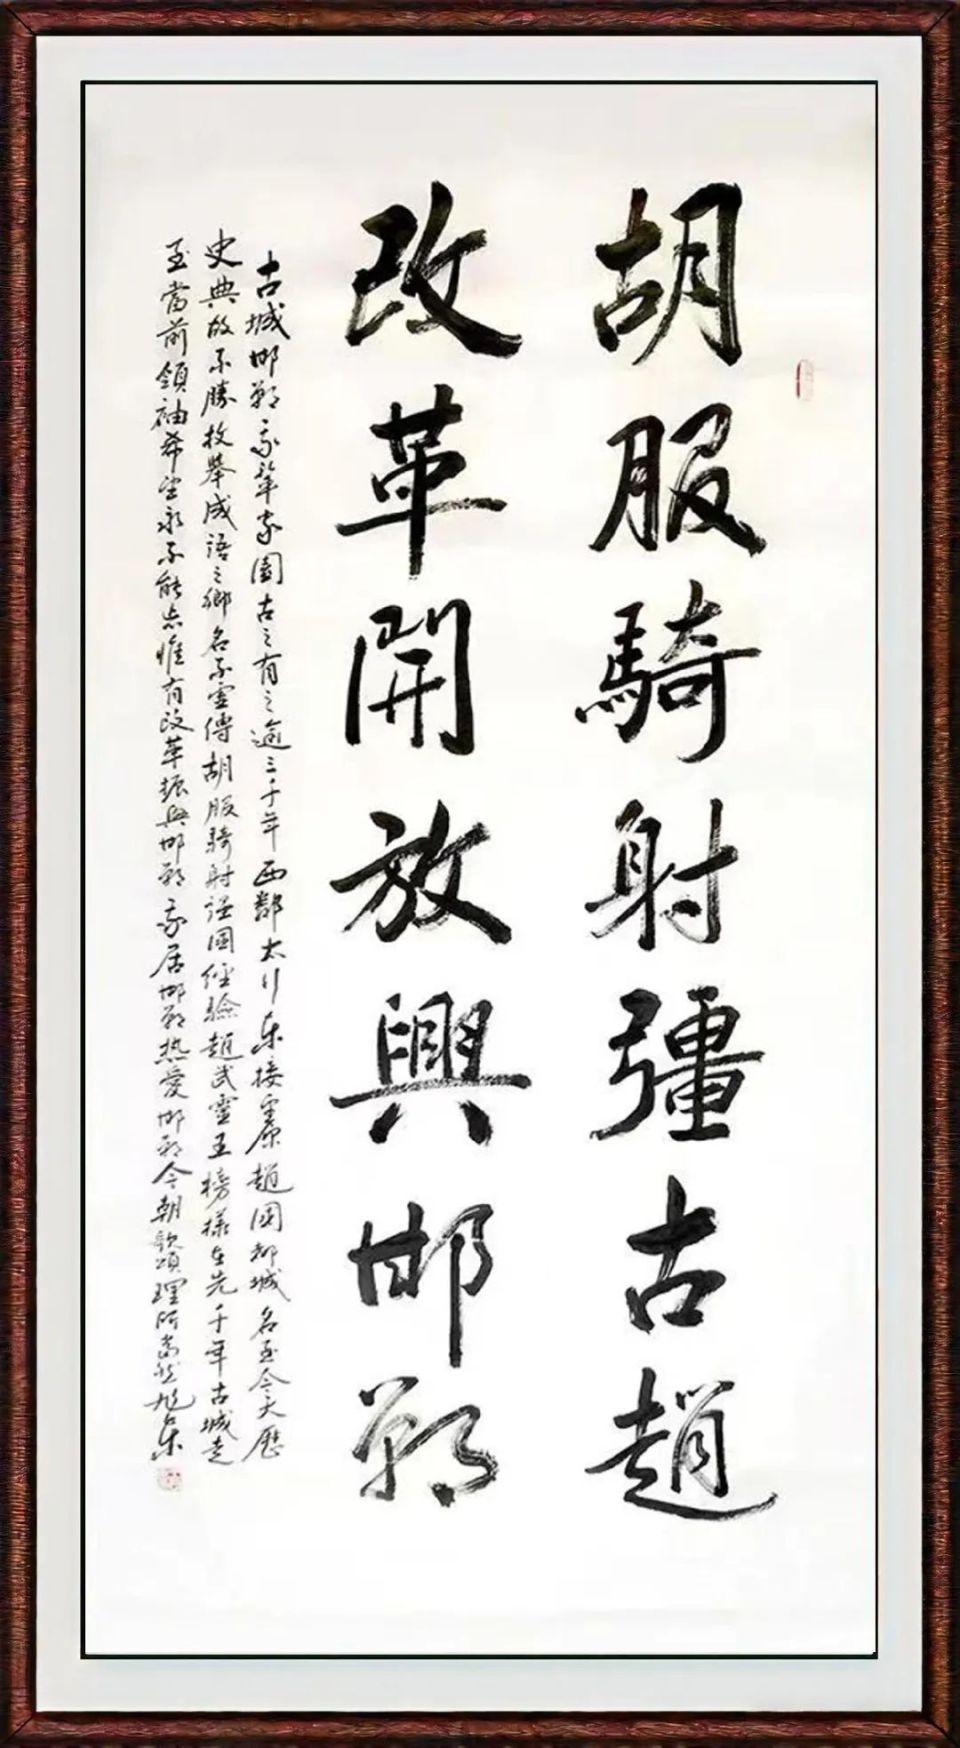 胡服騎射彊古趙
改革開放興邯鄲
古城邯鄲我輩家園古之有之逾三千年西鄰太行東接中原趙国都城名至今天歷
史典故不勝枚舉成語之鄉名不虛傳胡服騎射强国经驗趙武靈王榜樣在先千年古城走
至當前領袖希望永不能忘惟有改革振興邯鄲我居邯鄲热愛邯鄲今朝歌頌理所當然旭東